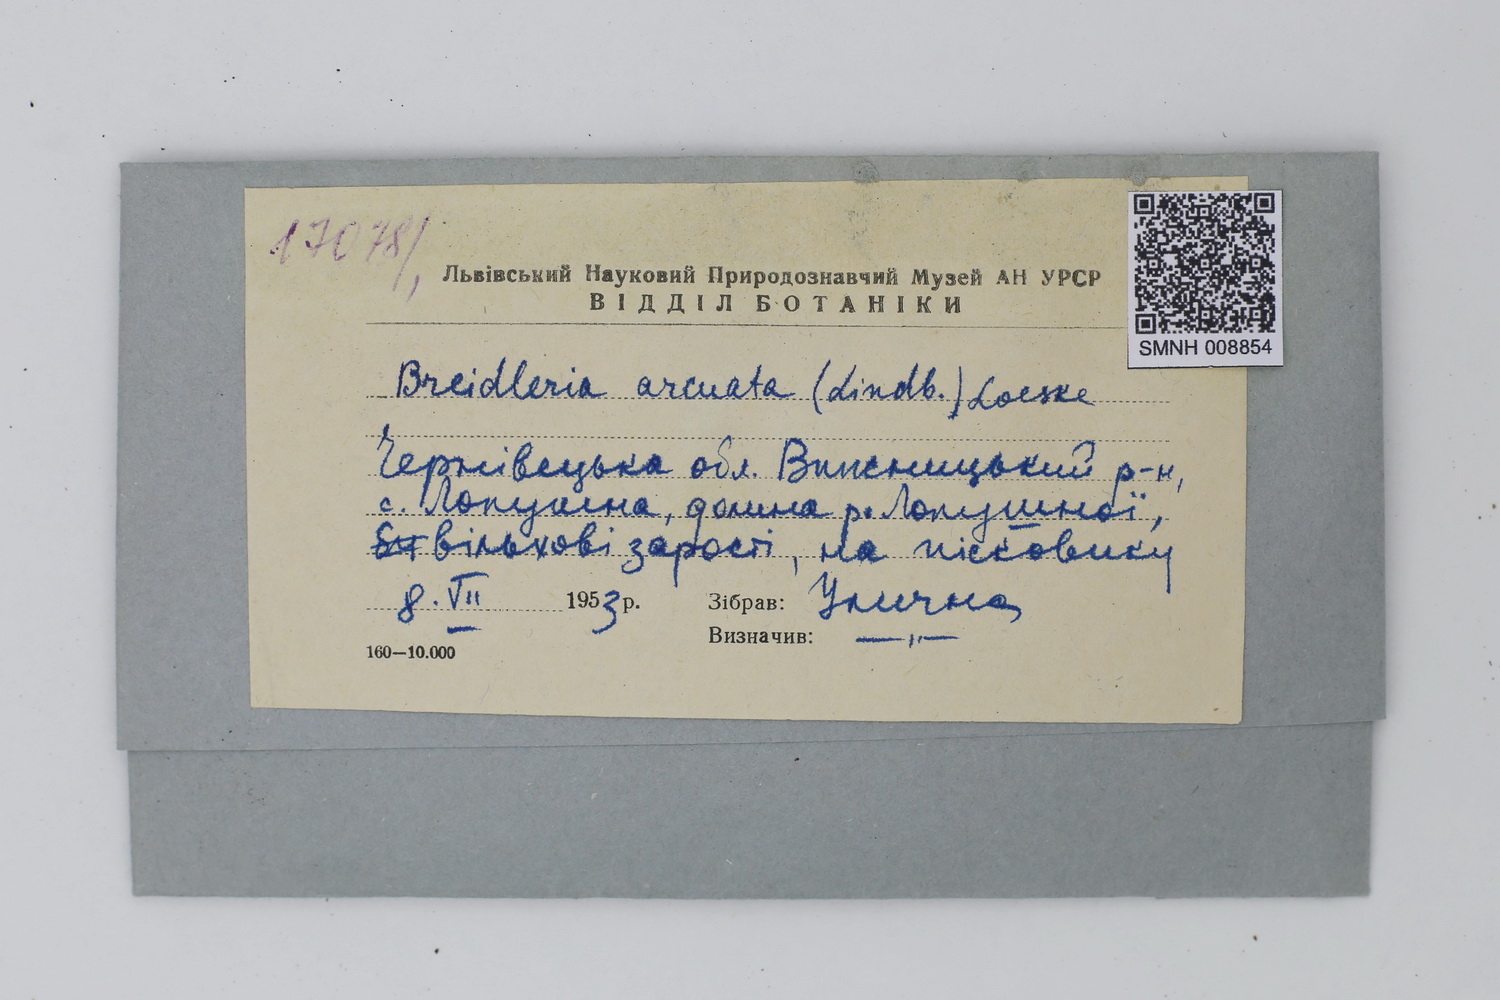 17078/,
Львівський Науковий Природознавчий Музей АН УРСР
ВІДДІЛ БОТАНІКИ
SMNH 008854
Breidleria arcuata (Lindb.) Loeske
Чернівецька обл. Вижницький р-н,
с. Лопушна, долина р. Лопушної,
вільхові зарості, на пісковику
8. VII 1953 р. Зібрав: Улична
Визначив: —„—
160—10.000